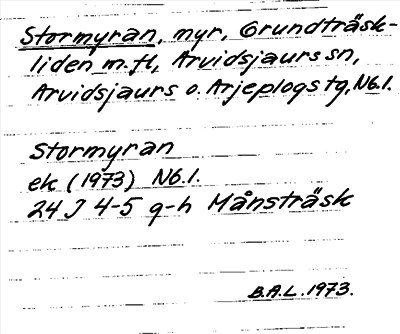 Stormyran, myr, Grundträsk-
liden m.fl., Arvidsjaurs sn,
Arvidsjaurs o. Arjeplogs tg, Nb.l.
Stormyran
ek (1973) Nb.l.
24 J 4-5 g-h Månsträsk
B.A.L. 1973.